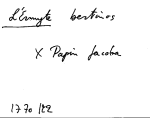 L'Ermyte bertinos
X Papin Jacoba
1770/82